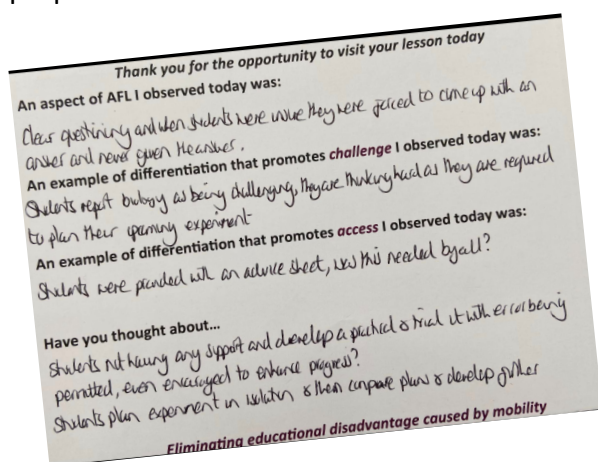 Thank you for the opportunity to visit your lesson today
An aspect of AFL I observed today was:
Clear questioning and when students were unsure they were forced to come up with an
answer and never given the answer.
An example of differentiation that promotes challenge I observed today was:
Students report biology as being challenging, they are thinking hard as they are required
to plan their upcoming experiment
An example of differentiation that promotes access I observed today was:
Students were provided with an advice sheet, was this needed by all?
Have you thought about...
Students not having any support and develop a practical & trial it with error being
permitted, even encouraged to enhance progress?
Students plan experiment in isolation & then compare plans & develop further
Eliminating educational disadvantage caused by mobility